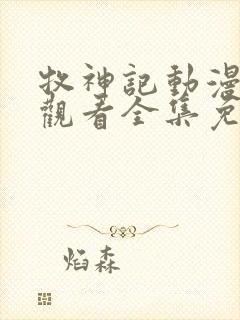 牧神記動漫
觀看全集免
焰森